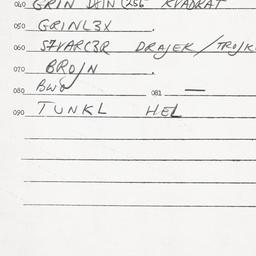 040 GRIN DEIN (256 KVADRAT
050 GRINL3X
060 STVARC3R DRAJEK / TROJK
070 BROJN
080 BWO 081 —
090 TUNKL HEL